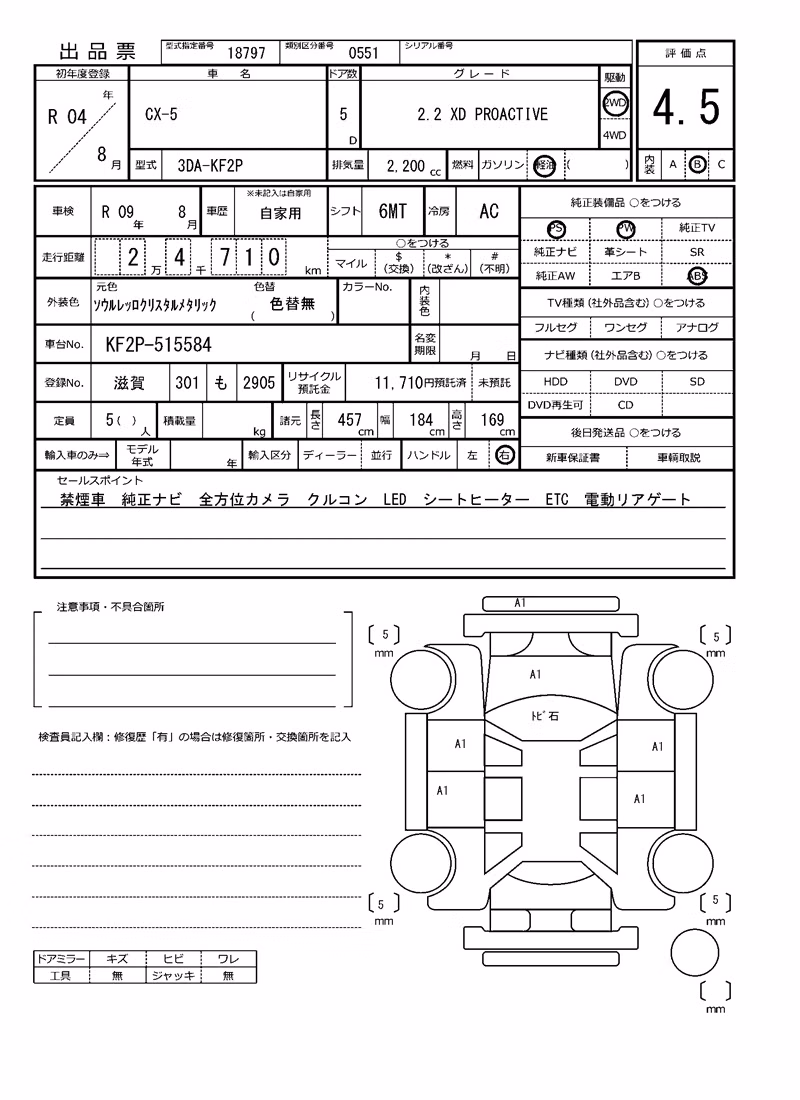 出品票 型式指定番号 18797 類別区分番号 0551 シリアル番号 評価点
初年度登録 車名 ドア数 グレード 駆動
R 04 年 8 月 CX-5 5 D 2.2 XD PROACTIVE 2WD 4WD 4.5
型式 3DA-KF2P 排気量 2,200 cc 燃料 ガソリン 軽油 ( ) 内装 A B C
車検 R 09 年 8 月 車歴 ※未記入は自家用 自家用 シフト 6MT 冷房 AC 純正装備品 ○をつける
PS PW 純正TV
走行距離 2 万 4 千 7 1 0 km ○をつける
マイル $ (交換) * (改ざん) # (不明)
純正ナビ 革シート SR
純正AW エアB ABS
外装色 元色 ソウルレッロクリスタルメタリック 色替 ( 色替無 ) カラーNo. 内装色
TV種類 (社外品含む) ○をつける
フルセグ ワンセグ アナログ
車台No. KF2P-515584 名変期限 月 日
ナビ種類 (社外品含む) ○をつける
登録No. 滋賀 301 も 2905 リサイクル預託金 11,710 円預託済 未預託
HDD DVD SD
DVD再生可 CD
定員 5 ( ) 人 積載量 kg 諸元 長さ 457 cm 幅 184 cm 高さ 169 cm
後日発送品 ○をつける
輸入車のみ⇒ モデル年式 年 輸入区分 ディーラー 並行 ハンドル 左 右
新車保証書 車輌取説
セールスポイント
禁煙車 純正ナビ 全方位カメラ クルコン LED シートヒーター ETC 電動リアゲート
注意事項・不具合箇所
検査員記入欄：修復歴「有」の場合は修復箇所・交換箇所を記入
ドアミラー キズ ヒビ ワレ
工具 無 ジャッキ 無
A1
5 mm 5 mm
A1
トビ石
A1 A1
A1 A1
5 mm 5 mm
mm